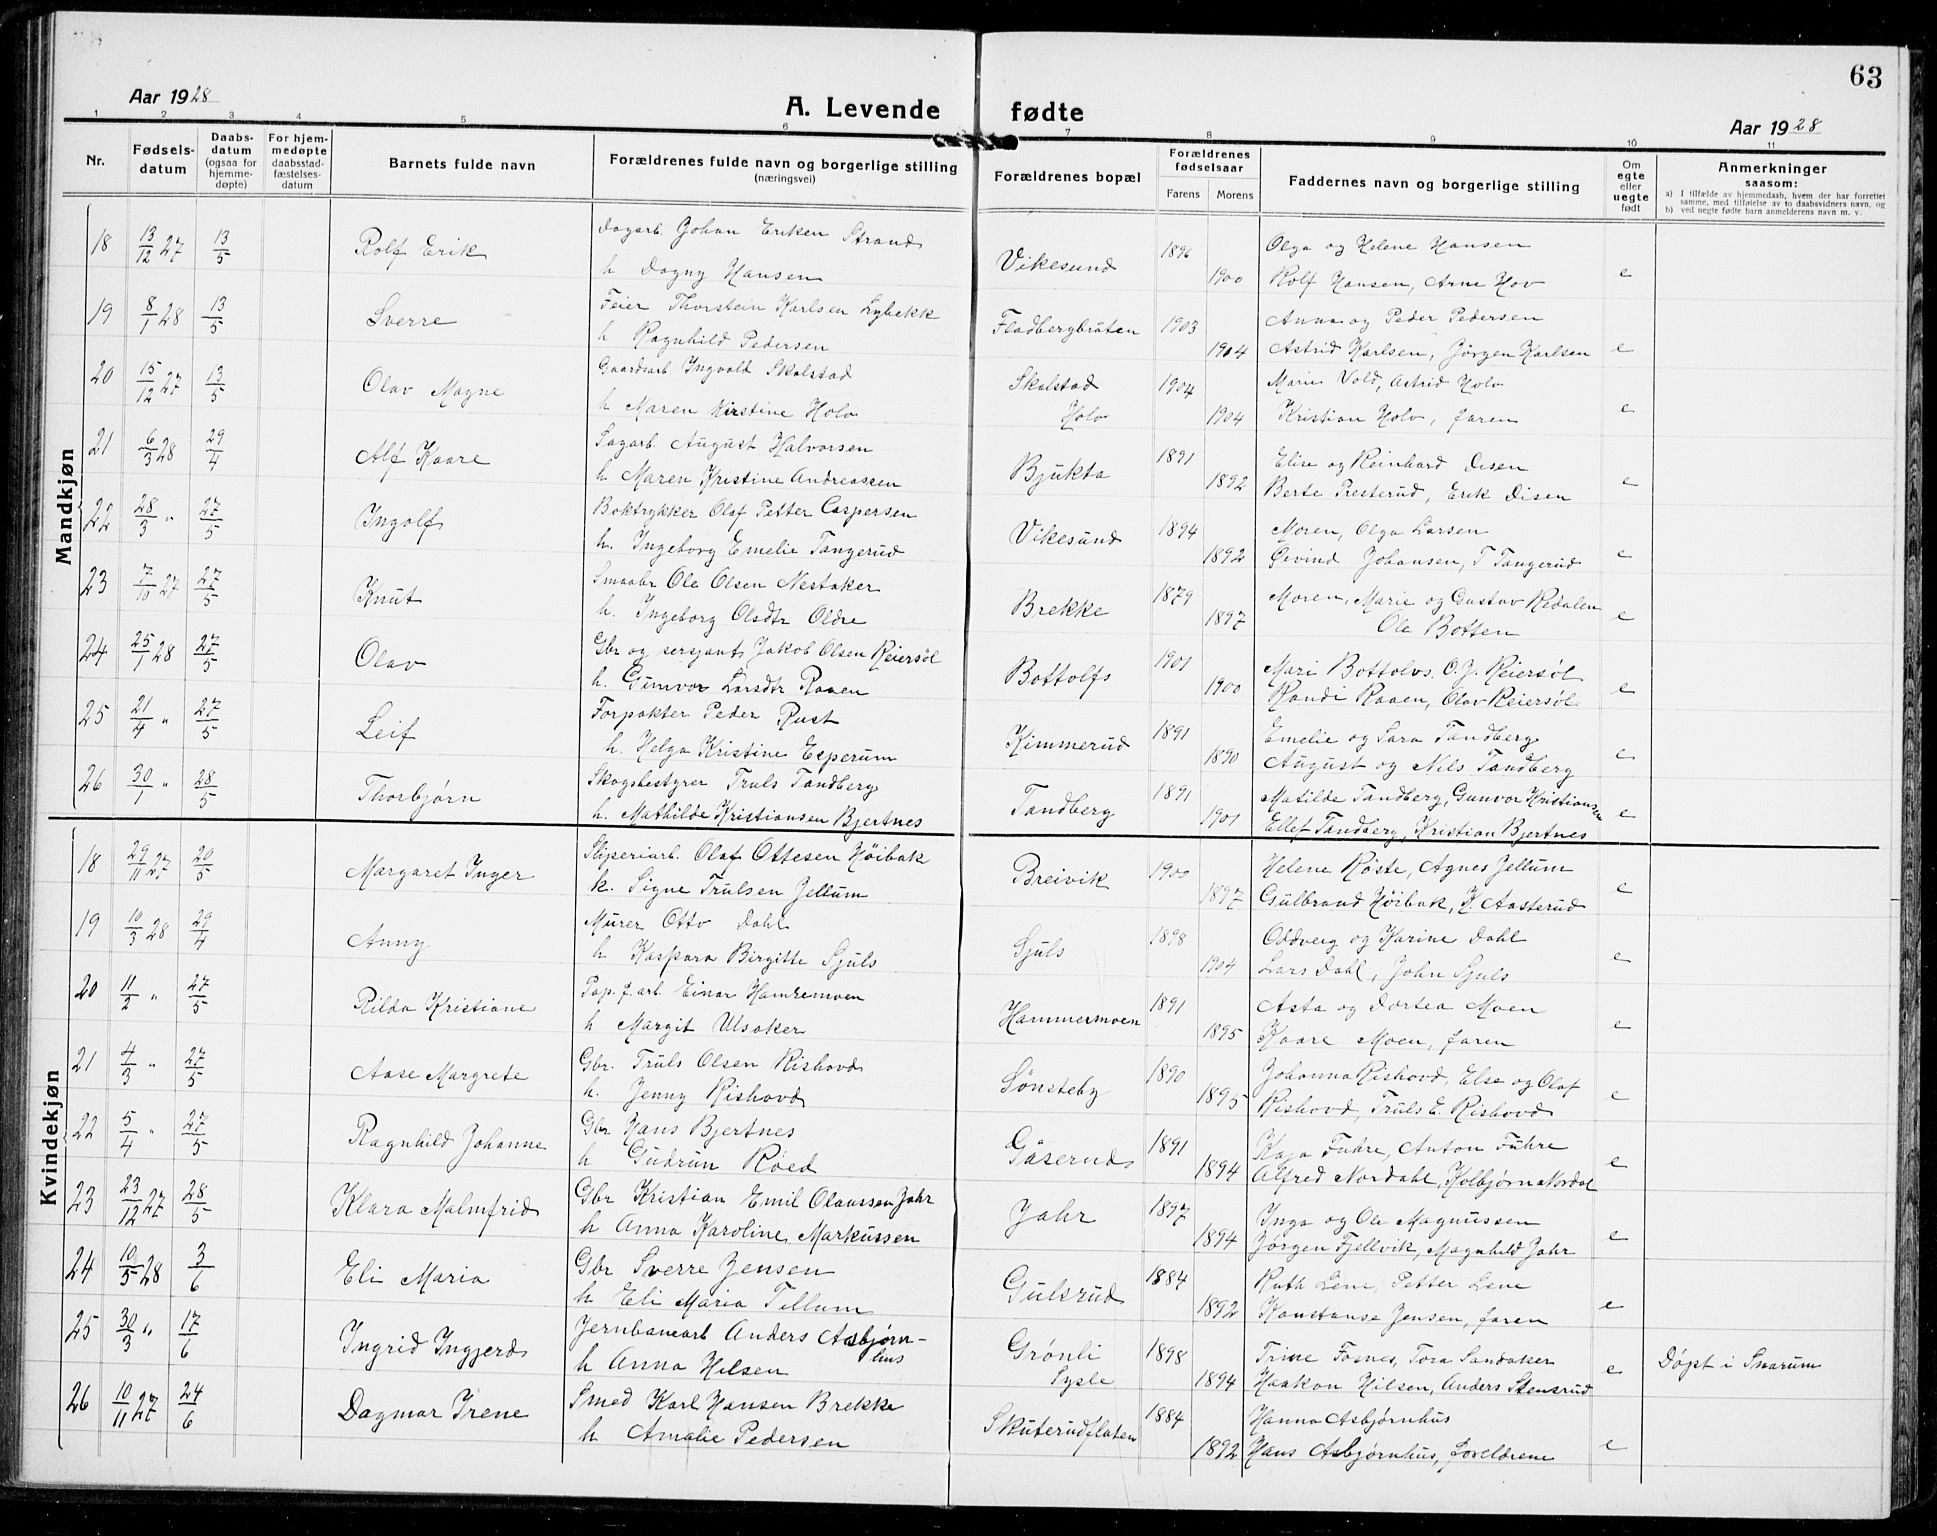 63
Aar 1928
A. Levende fødte
Aar 1928
1 2 3 4 5 6 7 8 9 10 11
Nr.
Fødsels-datum
Daabs-datum (ogsaa for hjemme-døpte)
For hjem-medøpte daabsstad-fæstelses-datum
Barnets fulde navn
Forældrenes fulde navn og borgerlige stilling (næringsvei)
Forældrenes bopæl
Forældrenes fødselsaar
Farens Morens
Faddernes navn og borgerlige stilling
Om egte eller uegte født
Anmerkninger saasom:
a) I tilfælde av hjemmedaab, hvem der har forrettet samme, med tilføielse av to daabsvidners navn, og
b) ved uegte fødte barn anmelderens navn m. v.
Mandkjøn
18 13/12 27 13/5 Rolf Erik Dagarb. Johan Eriksen Strand Vikesund 1896 Olga og Helene Hansen
h Dagny Hansen 1900 Rolf Hansen, Arne Hov e
19 8/1 28 13/5 Sverre Feier Thorstein Karlsen Lybekk Fladbergbråten 1903 Anna og Peder Pedersen
h Ragnhild Pedersen 1904 Astrid Karlsen, Jørgen Karlsen e
20 15/12 27 13/5 Olav Magne Gaardsarb Ingvald Skalstad Skalstad 1904 Marie Vold, Astrid Holv
h Maren Kirstine Holv Holv 1904 Kristian Holv, faren e
21 6/3 28 29/4 Alf Kaare Sagarb. August Halvorsen Bjukta 1891 Elise og Reinhard Disen
h Maren Kristine Andreassen 1892 Berte Presterud, Erik Disen e
22 28/3 " 27/5 Ingolf Boktrykker Olaf Petter Caspersen Vikesund 1894 Moren, Olga Larsen
h. Ingeborg Emelie Tangerud 1892 Øivind Johansen, T Tangerud e
23 7/10 27 27/5 Knut Smaabr Ole Olsen Nestaker Brekke 1879 Moren, Marie og Gustav Redalen
h. Ingeborg Olsdtr Oldre 1897 Ole Botten e
24 25/1 28 27/5 Olav Gbr og sersjant Jakob Olsen Reiersøl Bottolfs 1901 Mari Bottolvs. O.J. Reiersøl
h. Gunvor Larsdtr Raaen 1900 Randi Raaen, Olav Reiersøl e
25 21/4 " 27/5 Leif Forpakter Peder Rust Kimmerud 1891 Emelie og Sara Tandberg
h. Helga Kristine Esperum 1890 August og Nils Tandberg e
26 30/1 " 28/5 Thorbjørn Skogbestyrer Truls Tandberg Tandberg 1891 Matilde Tandberg, Gunvor Kristiansen
h. Mathilde Kristiansen Bjertnes 1901 Ellef Tandberg, Kristian Bjertnes e
Kvindekjøn
18 29/11 27 20/5 Margaret Inger Sliperiarb. Olaf Ottesen Høibak Breivik 1900 Helene Røste, Agnes Jellum
h. Signe Trulsen Jellum 1897 Gulbrand Høibak, K. Aasterud e
19 10/3 28 29/4 Anny Murer Otto Dahl Sjuls 1898 Oddveig og Karine Dahl
h Kaspara Birgitte Sjuls 1904 Lars Dahl, John Sjuls e
20 11/2 " 27/5 Rilda Kristiane Pap. f. arb. Einar Hamremoen Hammermoen 1891 Asta og Dortea Moen
h Margit Ulsaker 1895 Kaare Moen, faren e
21 4/3 " 27/5 Aase Margrete Gbr. Truls Olsen Rishovd Sønsteby 1890 Johanna Rishovd, Else og Olaf
h. Jenny Rishovd 1895 Rishovd, Truls E. Rishovd e
22 5/4 " 27/5 Ragnhild Johanne Gbr Hans Bjertnes Gåserud 1891 Kaja Fuhre, Anton Fuhre
h Gudrun Røed 1894 Alfred Nordahl, Kolbjørn Nordal e
23 23/12 27 28/5 Klara Malmfrid Gbr Kristian Emil Olaussen Jahr Jahr 1897 Inga og Ole Magnussen
h Anna Karoline Markussen 1894 Jørgen Fjellvik, Magnhild Jahr e
24 10/5 28 3/6 Eli Maria Gbr Sverre Jensen Gulsrud 1884 Ruth Lene, Petter Lene
h Eli Maria Tillum 1892 Konstanse Jensen, faren e
25 30/3 " 17/6 Ingrid Ingjerd Jernbanearb Anders Asbjørn-hus Grønli 1898 Trine Fosnes, Tora Sandaker
h Anna Hilsen Sysle 1894 Haakon Hilsen, Anders Stensrud e Døpt i Snarum
26 10/11 27 24/6 Dagmar Irene Smed Karl Hansen Brekke Skuterudflaten 1884 Hanna Asbjørnhus
h Amalie Pedersen 1892 Hans Asbjørnhus, foreldrene e